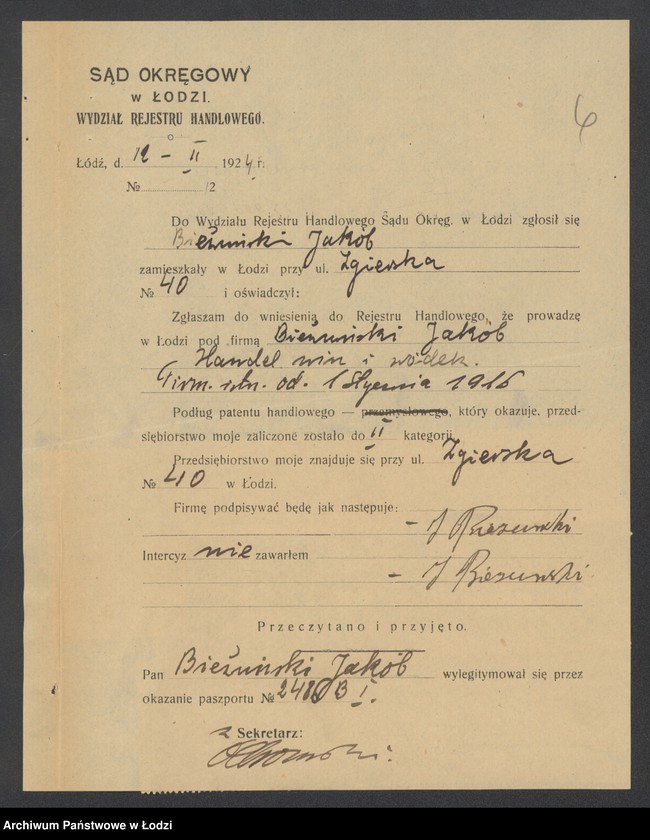 SĄD OKRĘGOWY
w ŁODZI.
WYDZIAŁ REJESTRU HANDLOWEGO.
6
Łódź, d. 12 - II 1924 r.
№ 12
Do Wydziału Rejestru Handlowego Sądu Okręg. w Łodzi zgłosił się
Bieżuński Jakób
zamieszkały w Łodzi przy ul. Zgierska
№ 40 i oświadczył:
Zgłaszam do wniesienia do Rejestru Handlowego, że prowadzę
w Łodzi pod firmą Bieżuński Jakób
Handel win i wódek.
Firm. istn. od. 1 Stycznia 1916
Podług patentu handlowego — przemysłowego, który okazuje, przed-
siębiorstwo moje zaliczone zostało do II kategorji.
Przedsiębiorstwo moje znajduje się przy ul. Zgierska
№ 40 w Łodzi.
Firmę podpisywać będę jak następuje:
- J Biezunski
Intercyz nie zawarłem
- J Biezunski
Przeczytano i przyjęto.
Pan Bieżuński Jakób wylegitymował się przez
okazanie paszportu № B I.
z Sekretarz:
Archiwum Państwowe w Łodzi